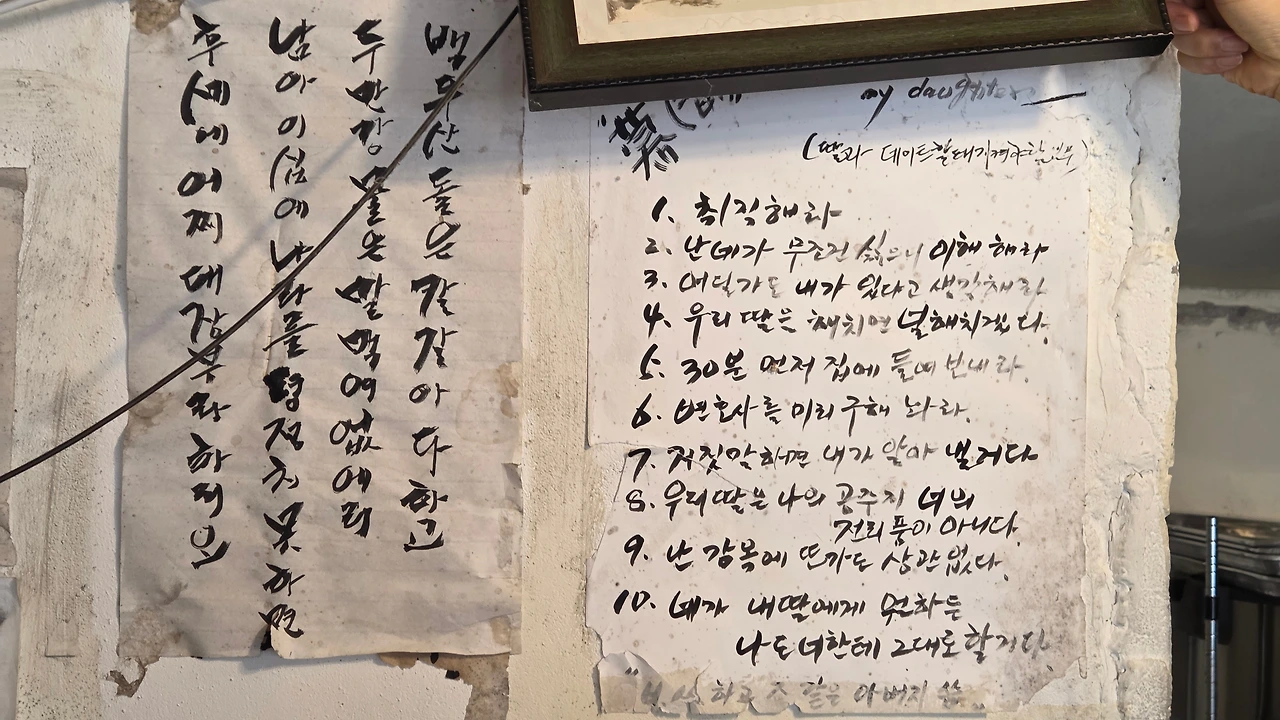 백두산 돌은 칼 갈아 다 하고
두만강 물은 말 먹여 없에리
남아 이십에 나라를 평정치 못 하면
후세에 어찌 대장부라 하리오
my daughter
(딸과 데이트할때 지켜야할
1. 취직해라
2. 난 네가 무조건 싫으니 이해 해라
3. 어딜가도 내가 있다고 생각해라
4. 우리 딸을 해치면 널해치겠다.
5. 30분 먼저 집에 들여보내라.
6. 변호사를 미리 구해 놔라.
7. 거짓말하면 내가 알아 낼거다
8. 우리딸은 나의 공주지 너의
전리품이 아니다.
9. 난 감옥에 또가도 상관없다.
10. 네가 내딸에게 원하는
나도너한테 그대로할거다.
같은 아버지